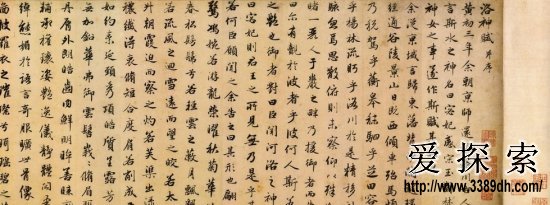 洛神賦并序
黃初三年余朝京師還濟洛川古人
言斯水之神名曰宓妃感宋玉
神女之事遂作斯賦其
余從京域言歸東藩背
轅經通谷陵景山日既西傾車殆馬
乃稅駕乎蘅皋秣駟乎芝田容
乎楊林流眄乎洛川於是精移
駭忽焉思散俯則未察仰以殊
睹一麗人于巖之畔乃援御者
曰爾有覿於彼者乎彼何人斯若
之豔也御者對曰臣聞河洛
曰宓妃則君王之所見無乃是乎
若何臣願聞之余告之曰其形也翩
驚鴻婉若游龍榮曜秋菊華
春松髣髴兮若輕雲之蔽月
若流風之迴雪遠而望之皎若太
升朝霞迫而察之灼若芙蕖出
穠纖得衷脩短合度肩若削
如約素延頸秀項皓質呈露
無加鉛華弗御雲髻峨峨脩眉
丹脣外朗皓齒內鮮明眸善睞
輔承權瓌姿豔逸儀靜體閑
綽態媚於語言奇服曠世骨像
披羅衣之璀璨兮珥瑤碧之
爱探索
www.3389dh.com/